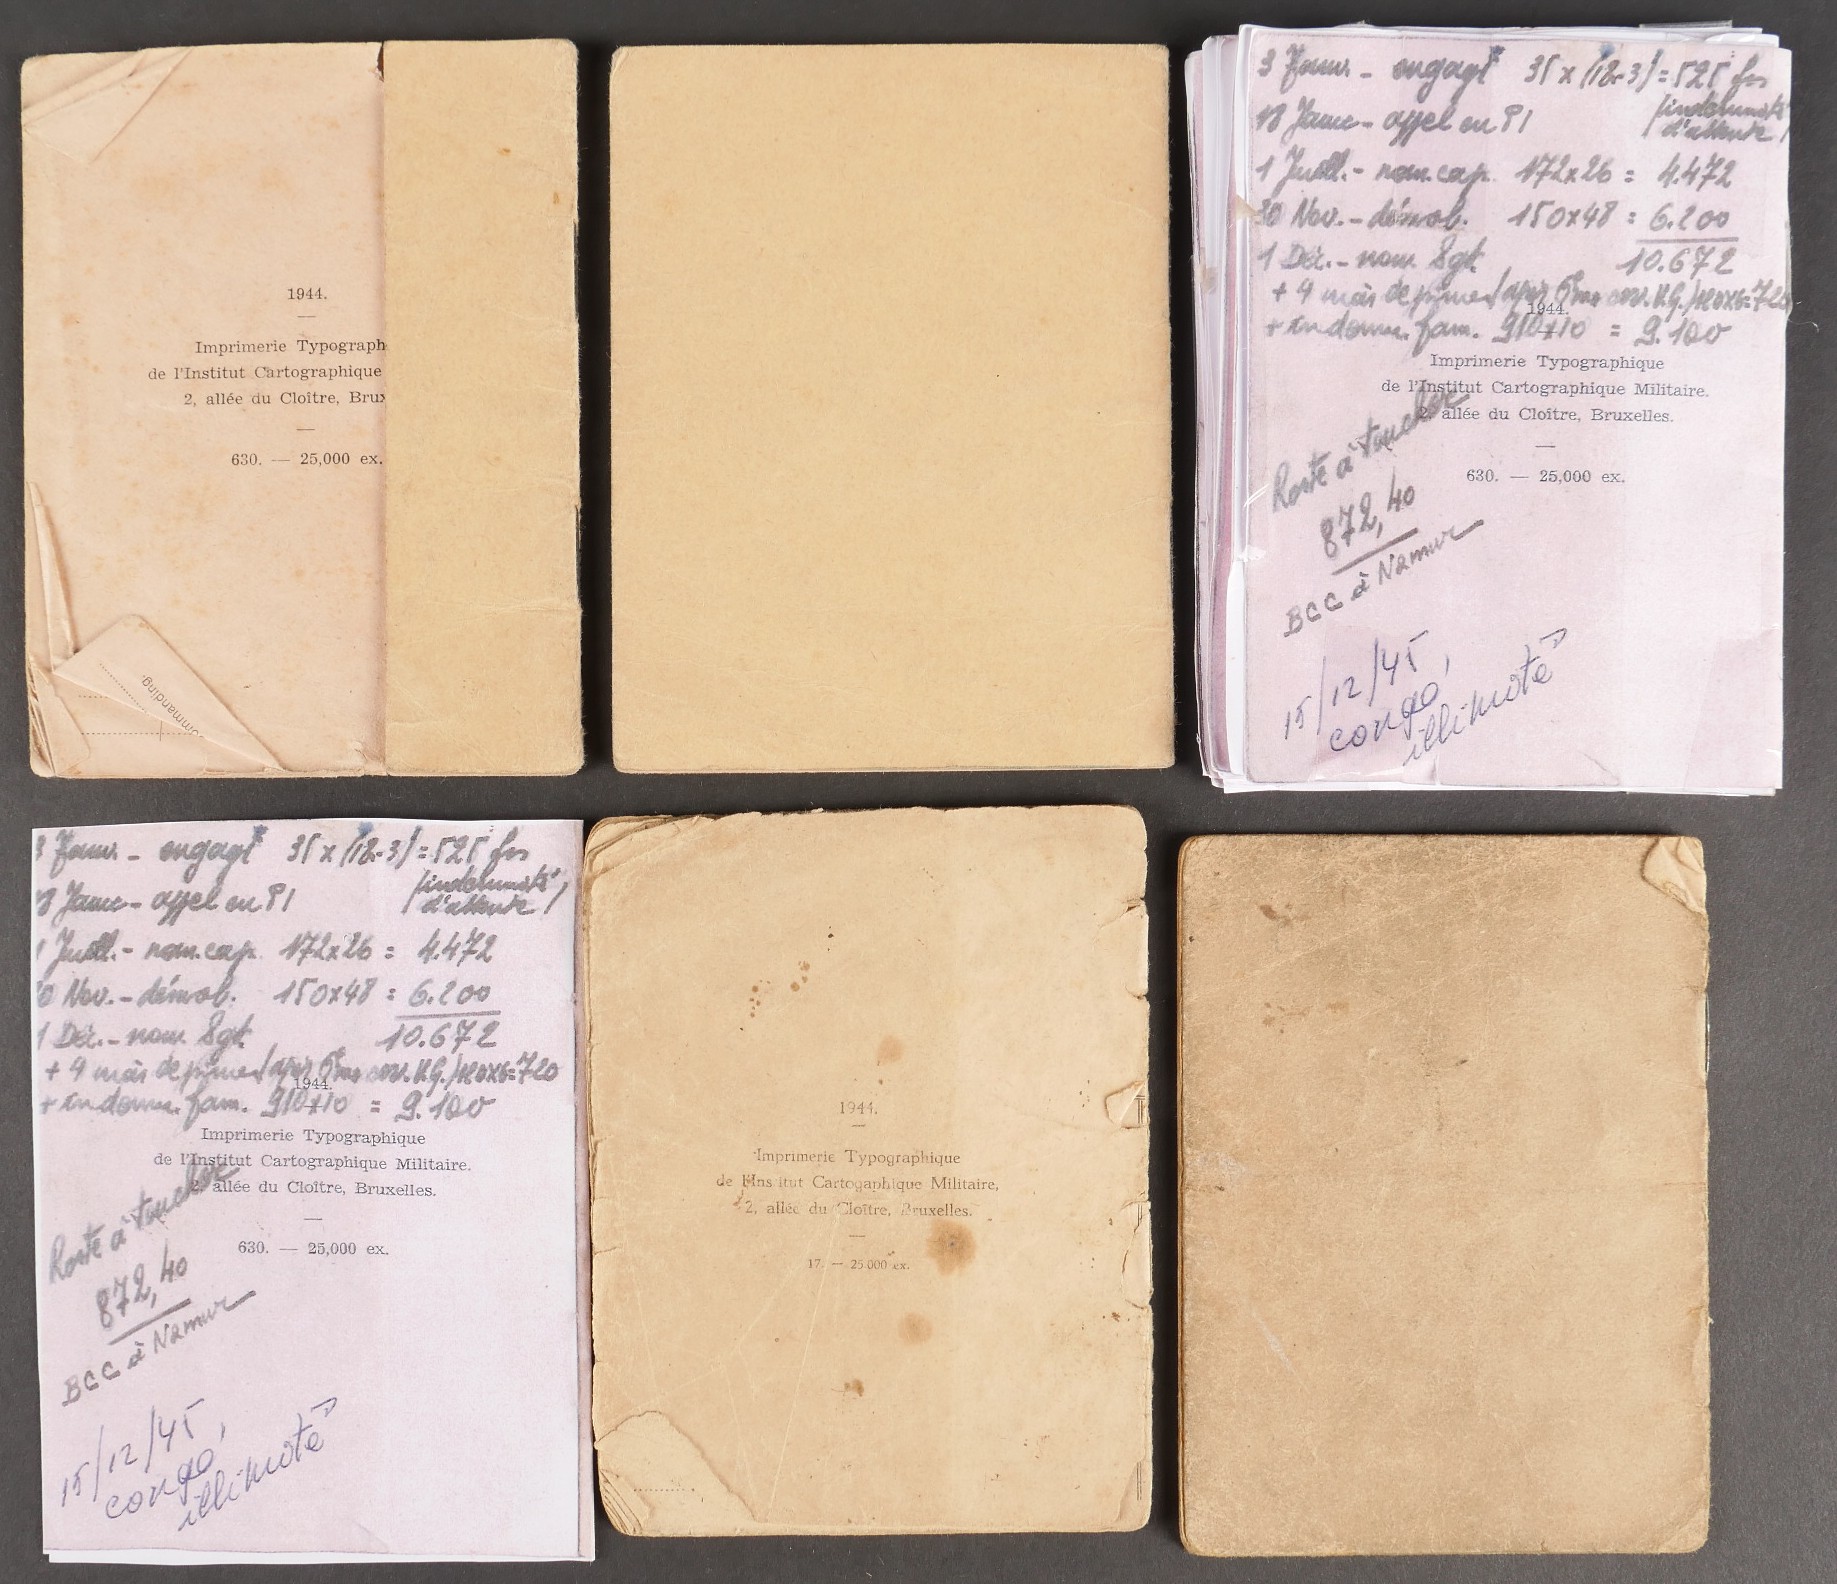 1944.
Imprimerie Typograph
de l'Institut Cartographique
2, allée du Cloître, Brux
630. — 25,000 ex.
mmanding.
3 Janv. - engagt 35 x (18-3) = 525 frs
18 Janv - appel en P1 (indemnité
d'attente)
1 Juill. - nom. cap. 172x26 = 4.472
30 Nov. - démob. 150x48 = 6.200
1 Déc. - nom. Sgt. 10.672
+ 4 mois de
1944.
+ indemn. fam. 910x10 = 9.100
Imprimerie Typographique
de l'Institut Cartographique Militaire.
2, allée du Cloître, Bruxelles.
630. — 25,000 ex.
Reste à toucher
872,40
BCC à Namur
15/12/45,
congé
illimité
3 Janv. - engagt 35 x (18-3) = 525 frs
18 Janv - appel en P1 (indemnité
d'attente)
1 Juill. - nom. cap. 172x26 = 4.472
0 Nov. - démob. 150x48 = 6.200
1 Déc. - nom. Sgt. 10.672
+ 4 mois de 120x6=720
1944.
+ indemn. fam. 910x10 = 9.100
Imprimerie Typographique
de l'Institut Cartographique Militaire.
2, allée du Cloître, Bruxelles.
630. — 25,000 ex.
Reste à toucher
872,40
BCC à Namur
15/12/45,
congé
illimité
1944.
Imprimerie Typographique
de l'Ins itut Cartogaphique Militaire,
2, allée du Cloître, Bruxelles.
17. — 25.000 ex.